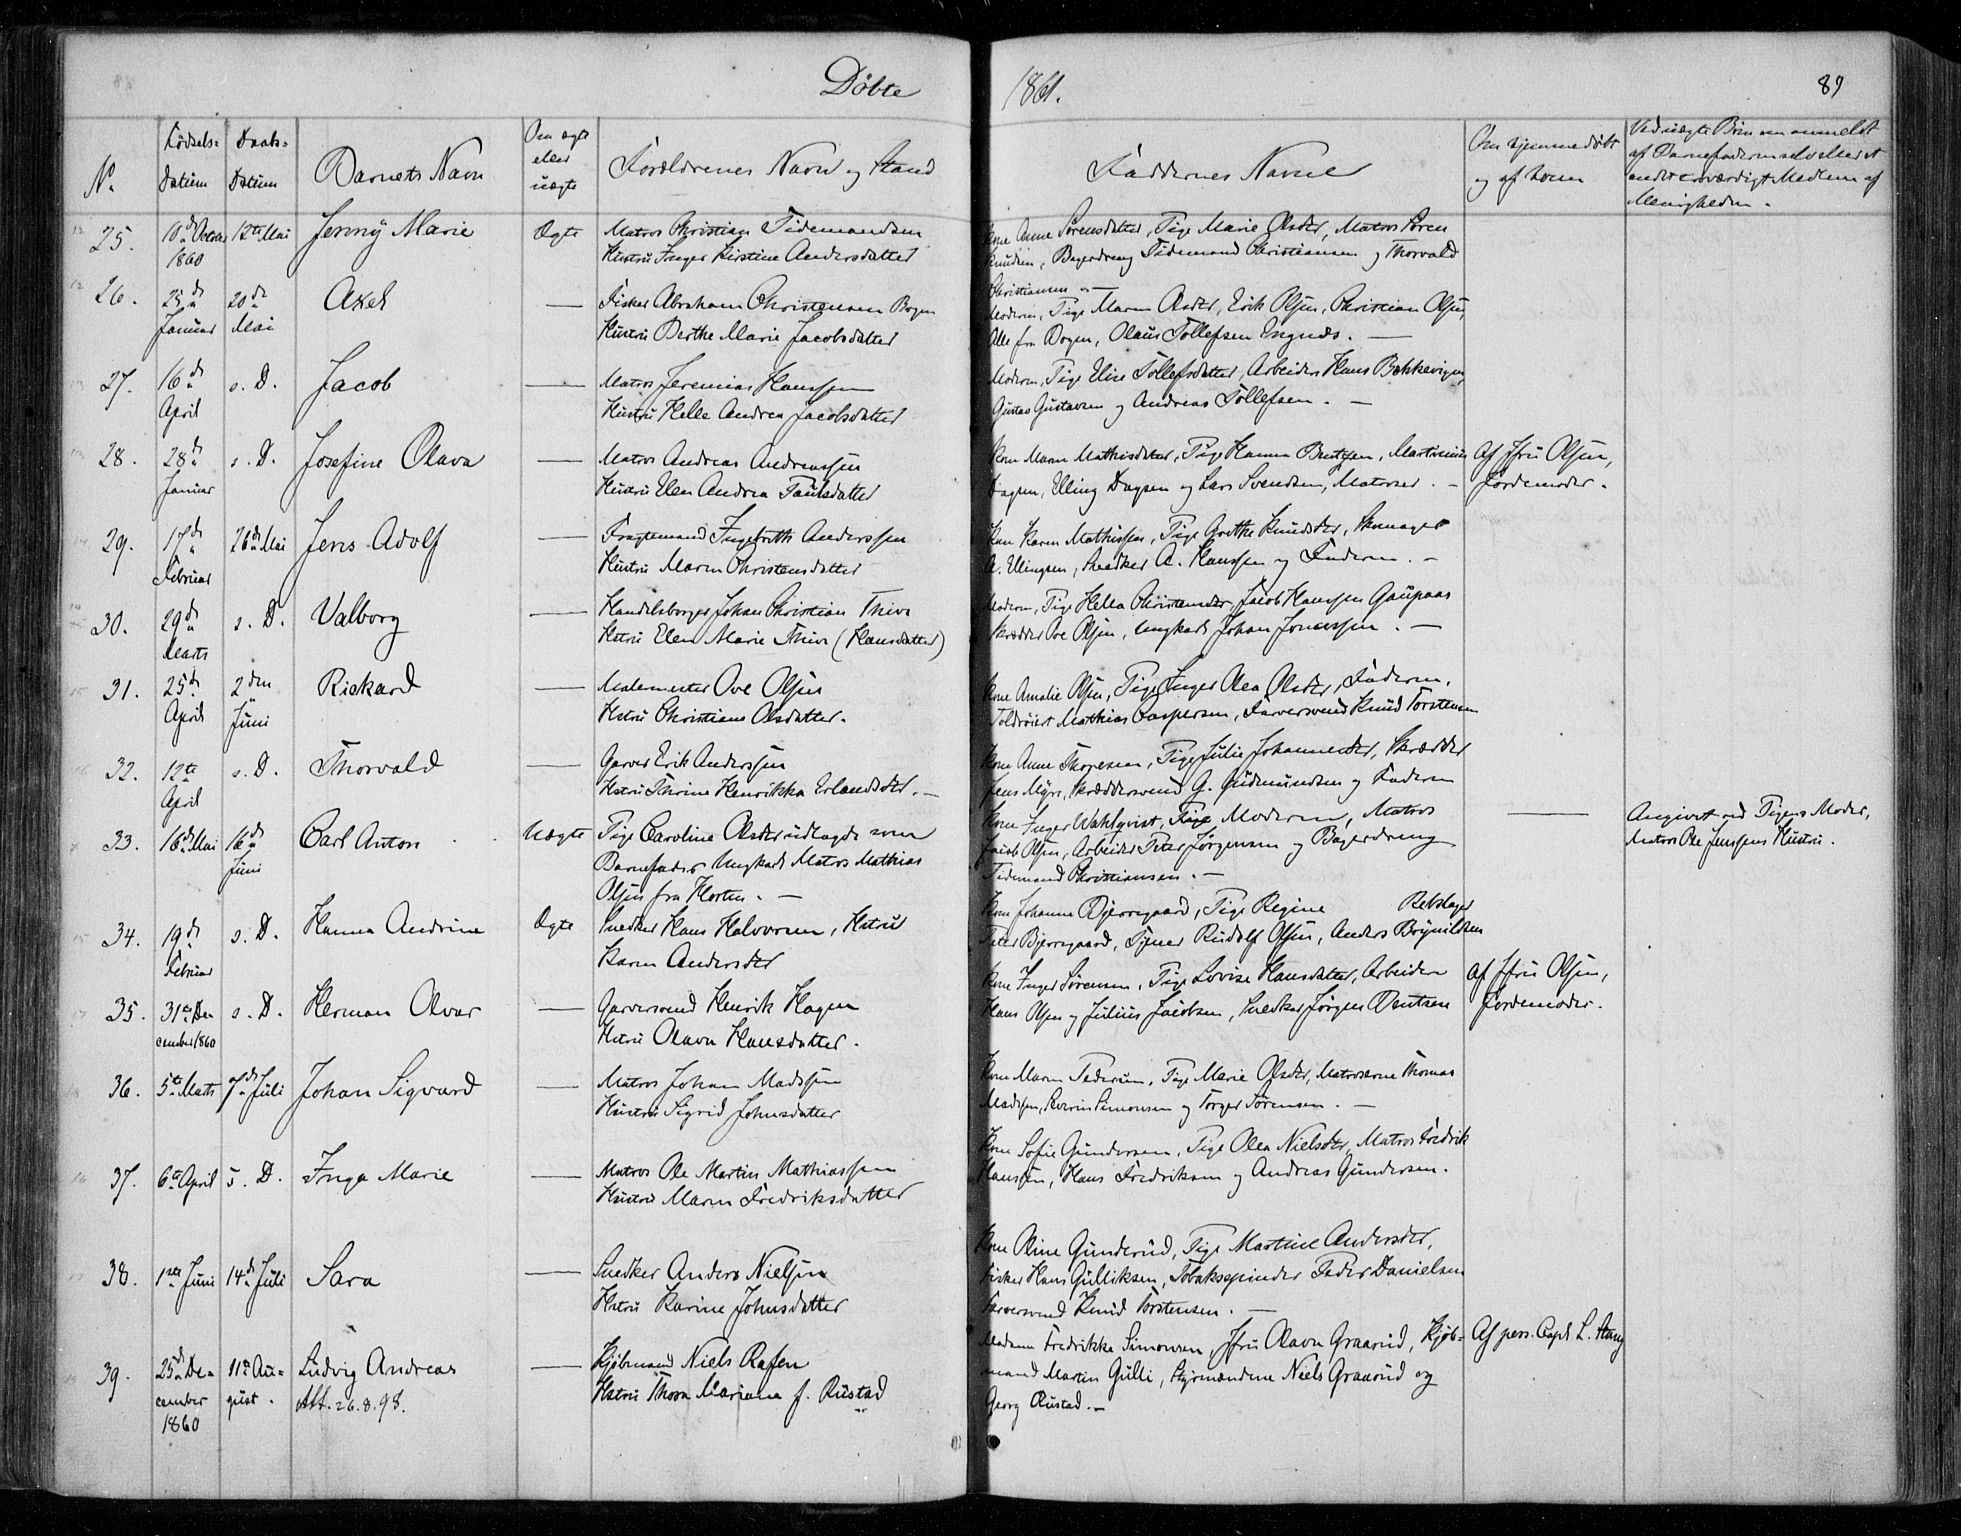 Döbte 1861. 89
No. Födsels-Datum Daabs-Datum Barnets Navn Om ægte eller uægte Forældrenes Navn og Stand Faddernes Navne Om hjemmedöbt og af hvem Ved uægte Börn om anmeldt af Barnefaderen selv eller et andet troværdigt Medlem af Menigheden.
25. 10de October 1860 12te Mai Jenny Marie Ægte Matros Christian Tidemandsen
Hustru Inger Kirstine Andersdatter
Kone Anne Sörensdatter, Tige Marie Olsdtr, Matros Sören
Knudsen, Bagerdreng Tidemand Christiansen og Thorvald
Christiansen
26. 25de Januar 20de Mai Axel — Fisker Abraham Christensen Bogen
Hustru Berthe Marie Jacobsdatter
Moderen, Pige Maren Olsdtr, Erik Olsen, Christian Olsen,
Alle fra Bogen, Olaus Tollefsen Engnæs. —
27. 16de April s. D. Jacob — Matros Jeremias Hanssen
Hustru Helle Andrea Jacobsdatter
Moderen, Pige Elise Tollefsdatter, Arbeider Hans Bækkevigen,
Gustav Gustavsen og Andreas Tollefsen. —
28. 28de Januar s. D. Josefine Olava — Matros Andreas Andreassen
Hustru Elen Andrea Paulsdatter
Kone Maren Mathisdatter, Pige Hanna Bentzen, Martinius
Dagsen, Elling Dagsen og Lars Svendsen, Matroser. —
Af Jfru Olsen,
Jordemoder.
29. 17de Februar 26de Mai Jens Adolf — Fragtemand Ingebreth Anderssen
Hustru Maren Christensdatter
Kone Karen Mathissen, Pige Grethe Knudsdtr, Skomager
A. Ellingsen, Snedker A. Hanssen og Faderen. —
30. 29de Marts s. D. Valborg — Handelsborger Johan Christian Thiis
Hstru Elen Marie Thiis (Hansdatter)
Moderen, Pige Hella Christensdtr, Jacob Hanssen Gaupaas
Skrædder Ove Olsen, Ungkarl Johan Jonassen. —
31. 25de April 2den Juni Rickard — Malermester Ove Olsen
Hstru Christiane Olsdatter.
Kone Amalie Olsen, Pige Inger Olea Olsdtr, Faderen,
Toldroiert Matthias Caspersen, Farversvend Knud Torstensen
32. 12te April s. D. Thorvald — Garver Erik Anderssen
Hstru Thrine Henrikka Erlandsdtr. —
Kone Anne Thoresen, Pige Julie Johannesdtr, Skrædder
Jens Myre, Skræddersvend G. Gudmundsen og Faderen
33. 16de Mai 16de Juni Carl Anton Uægte Pige Caroline Olsdtr udlagde som
Barnefader Ungkarl Matros Mathias
Olsen fra Horten. —
Kone Inger Wahlqvist, Moderen, Matros
Jacob Olsen, Arbeider Peter Jørgensen og Bagerdreng
Tidemand Christiansen. —
— Angivet ved Pigens Moder,
Matros Ole Jenssens Hustru.
34. 19de Februar s. D. Hanna Andrine Ægte Snedker Hans Halvorsen, Hstru
Karen Andersdtr
Kone Johanne Bjerregaard, Pige Regine Rebslager
Peter Bjerregaard, Tjener Rudolf Olsen, Anders Brynildsen
35. 31te December 1860 s. D. Herman Olvar — Garversvend Henrik Hagen
Hstru Olava Hansdatter.
Kone Inger Sörensen, Pige Lovise Hansdatter, Arbeider
Hans Olsen og Julius Jacobsen, Snedker Jörgen Bentsen
Af Jfru Olsen,
Jordemoder.
36. 5te Marts 7de Juli Johan Sigvard — Matros Johan Madssen
Hustru Sigrid Johnsdatter
Kone Maren Pedersen, Pige Marie Olsdtr, Matroserne Thomas
Madsen, Severin Simonsen og Torger Sörensen. —
37. 6te April s. D. Inga Marie — Matros Ole Martin Mathiassen
Hustru Maren Fredriksdatter
Kone Sofie Gundersen, Pige Olea Nielsdtr, Matros Fredrik
Hanssen, Hans Fredriksen og Andreas Gundersen.
38. 1ste Juni 14de Juli Sara — Snedker Anders Nielsen
Hstru Karine Johnsdatter
Kone Oline Gunderud, Pige Martine Andersdtr,
Fisker Hans Gulliksen, Tobakspinder Peder Danielsen
Farversvend Knud Torstensen. —
39. 25de December 1860 11te August. Ludvig Andreas — Kjöbmand Niels Rafen
Att. 26.8.98. Hstru Thora Mariane f. Rustad
Madame Fredrikke Simonsen, Jfru Olava Graarud, Kjöb-
mand Martin Gulli, Styrmændene Niels Graarud og
Georg Rustad. —
Af pers. Capl L. Stang